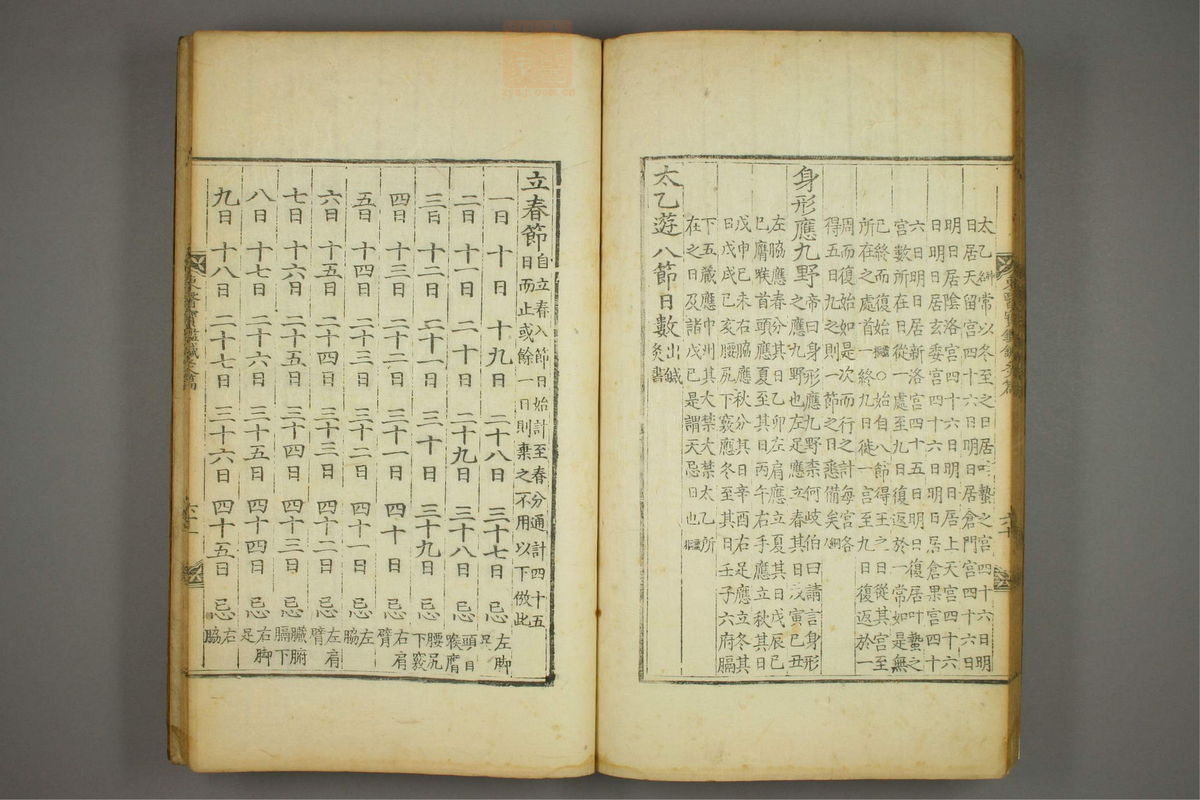 太乙神名常以冬至之日居叶蟄之宮四十六日明
日居天留宮四十六日明日居倉門宮四十六日
明日居陰洛宮四十六日明日居上天宮四十六
日明日居玄委宮四十六日明日居倉果宮四十
六日明日居新洛宮四十五日明日復居叶蟄之
宮數所在日從一處至九日復返於一常如是無
已終而復始靈樞○始自八節得王之日從其宮至
所在之處首一終九日徙一宮至九日復返於一
周而復始如是次而行之計每宮各
得五日九之則一節之日悉備矣銅人
身形應九野 帝曰身形應九野柰何岐伯曰請言身形
之應九野也左足應立春其日戊寅己丑
左脇應春分其日乙卯左肩應立夏其日戊辰己
巳膺喉首頭應夏至其日丙午右手應立秋其日
戊申己未右脇應秋分其日辛酉右足應立冬其
日戊戌己亥腰尻下竅應冬至其日壬子六府膈
下五藏應中州其大禁大禁太乙所
在之日及諸戊己是謂天忌日也靈樞
太乙遊八節日數 出鍼灸書
立春節 自立春入節日始計至春分通計四十五
日而止或餘一日則棄之不用以下倣此
一日 十日 十九日 二十八日 三十七日 忌 左脚足
二日 十一日 二十日 二十九日 三十八日 忌 頭目喉膺
三日 十二日 二十一日 三十日 三十九日 忌 腰尻下竅
四日 十三日 二十二日 三十一日 四十日 忌 右肩臂
五日 十四日 二十三日 三十二日 四十一日 忌 左脇
六日 十五日 二十四日 三十三日 四十二日 忌 左肩臂
七日 十六日 二十五日 三十四日 四十三日 忌 臟腑膈下
八日 十七日 二十六日 三十五日 四十四日 忌 右脚足
九日 十八日 二十七日 三十六日 四十五日 忌 右脇
東醫寶鑑鍼灸篇